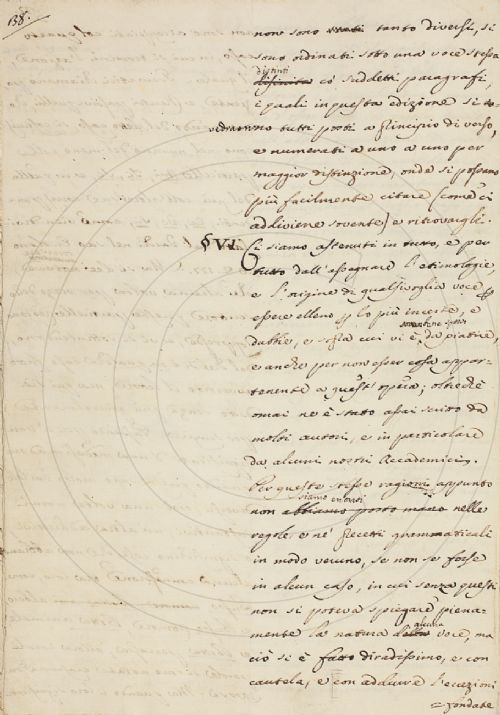 138.
non sono stati tanto diversi, si
sono ordinati sotto una voce stessa
distinti
co' suddetti paragrafi,
i quali in questa edizione si
vedranno tutti posti a principio di verso,
e numerati a uno a uno per
maggior distinzione, onde si possano
più facilmente citare (come ci
addiviene sovente) e ritrovargli.
§ VI. Ci siamo astenuti in tutto, e per
tutto dall'assegnare l'etimologie
e l'origine di qualsivoglia voce
essere elleno lo più incerte, e
dubbie, e essersi da piatire,
e anche per non esser cosa appar-
tenente a quest'opera; oltrechè
omai ne è stato assai scritto da
molti autori, e in particolare
da alcuni nostri Accademici.
Per queste stesse ragioni appunto
siamo entrati
non abbiamo posto mano nelle
regole, e ne' precetti grammaticali
in modo veruno, se non se forse
in alcun caso, in cui senza questi
non si poteva spiegare piena-
alcuna
mente la natura della voce, ma
ciò si è fatto di radissimo, e con
cautela, e con addurre l'eccezioni
= fondate